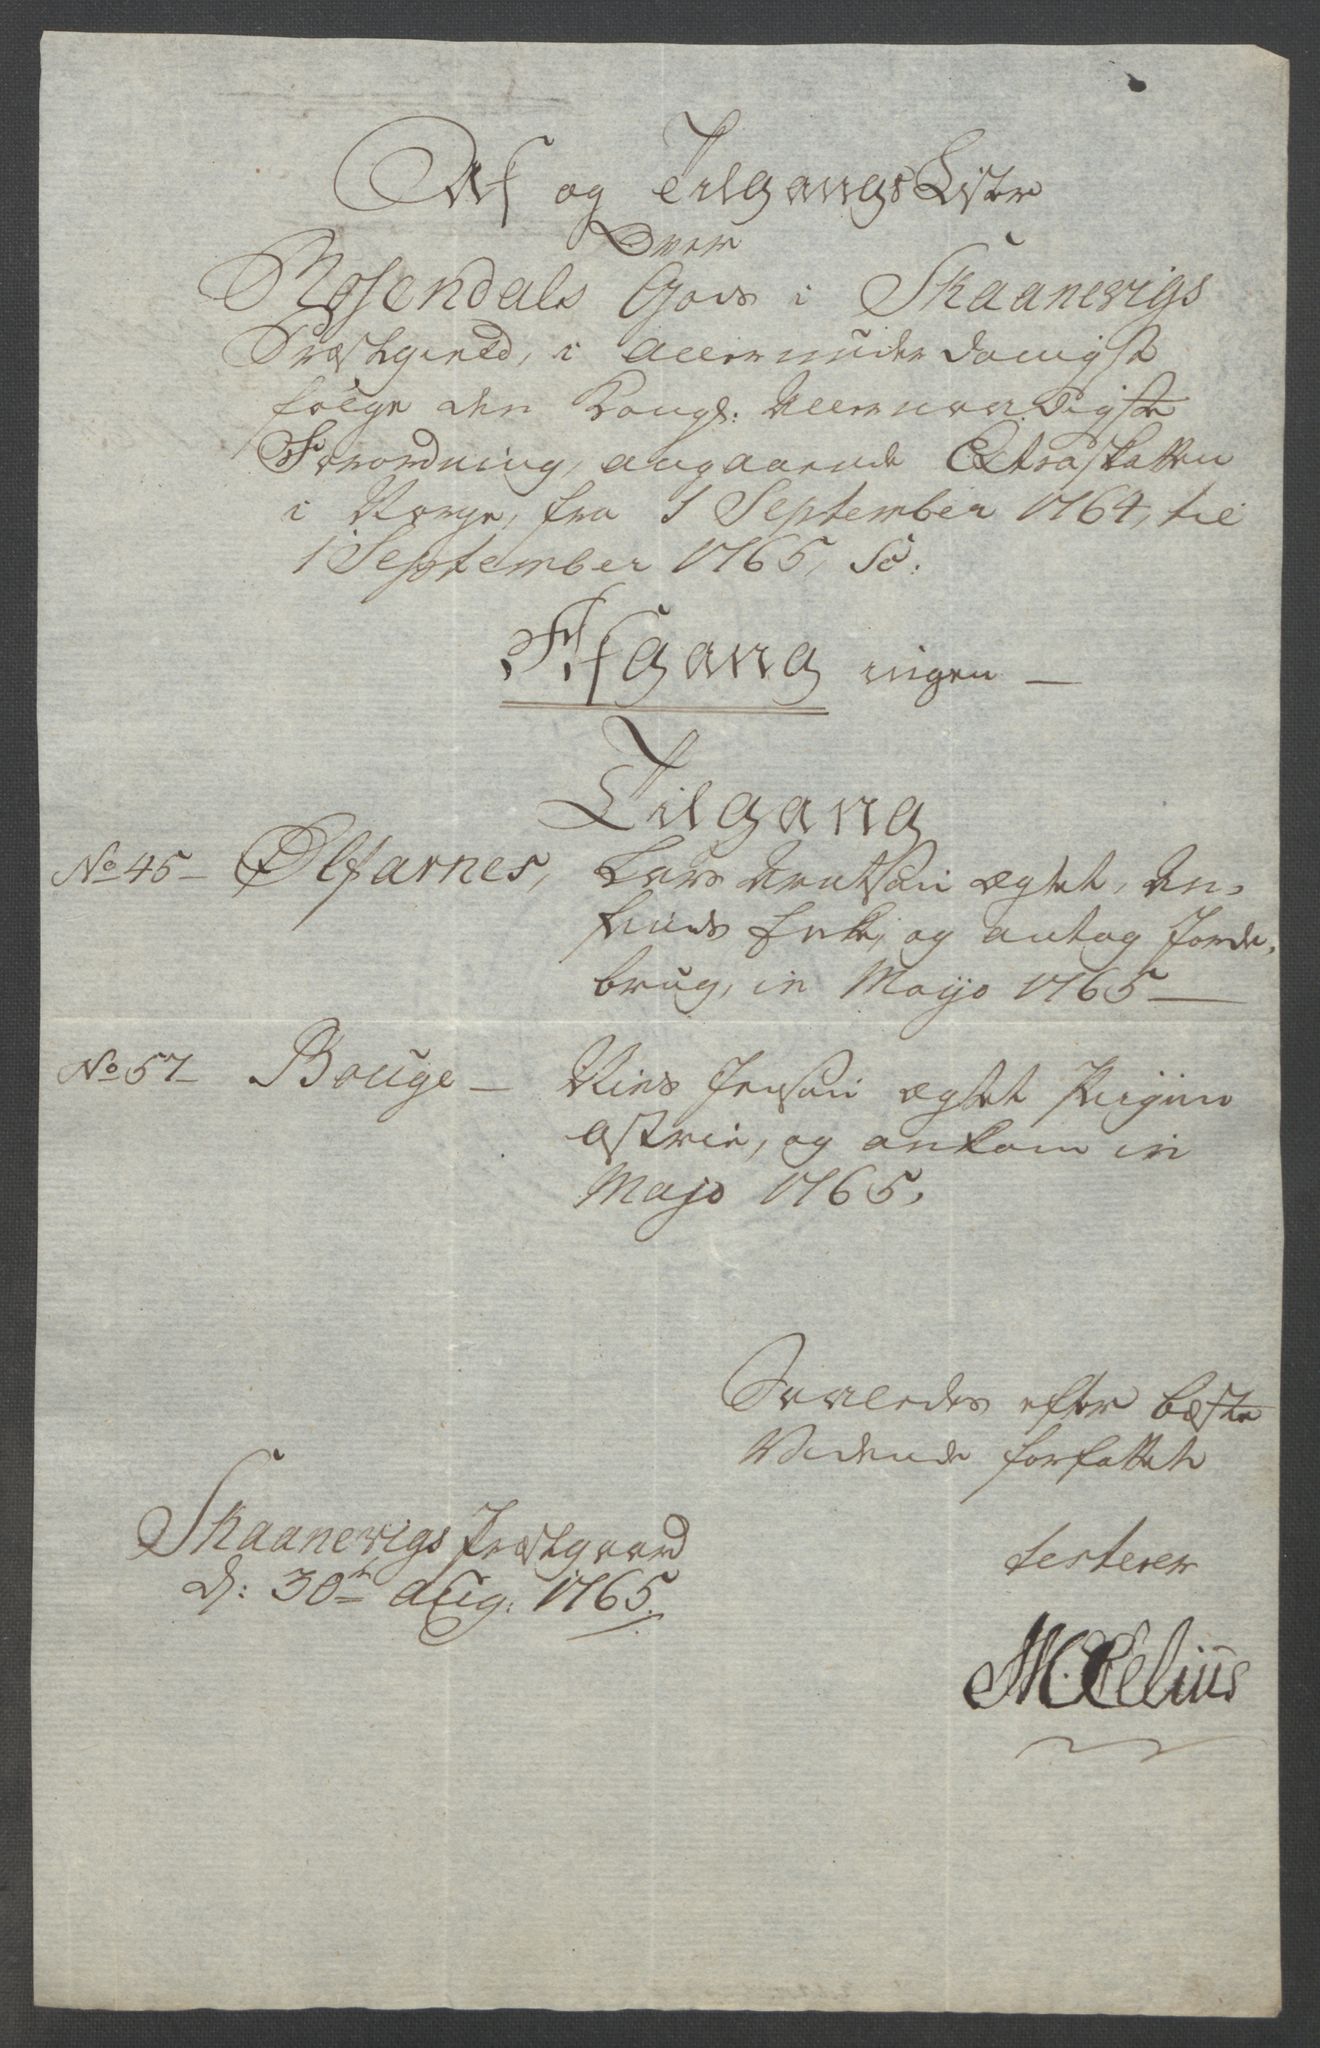 Af og Tilgangs Liste
Over
Rosendals Gods i Skaanevigs
Præstegield, i allerunderdanigst
følge den Kongl: Allernaadigste
Forordning, angaaende Extraskatten
i Norge, fra 1 September 1764, til
1 September 1765, Sc:
Afgang ingen —
Tilgang
No 45 – Ølfarnes, Lars Knutsøn ægtet, An-
finds Enke, og antog Jorde-
brug, in Majo 1765 —
No 57 – Bouge – Niels Jensøn ægtet Pigen
Astrie, og ankom in
Majo 1765.
Saaledes efter bæste
Vidende forfattet
Skaanevigs Præstgaard
d: 30te Aug: 1765.
testerer
M Celius